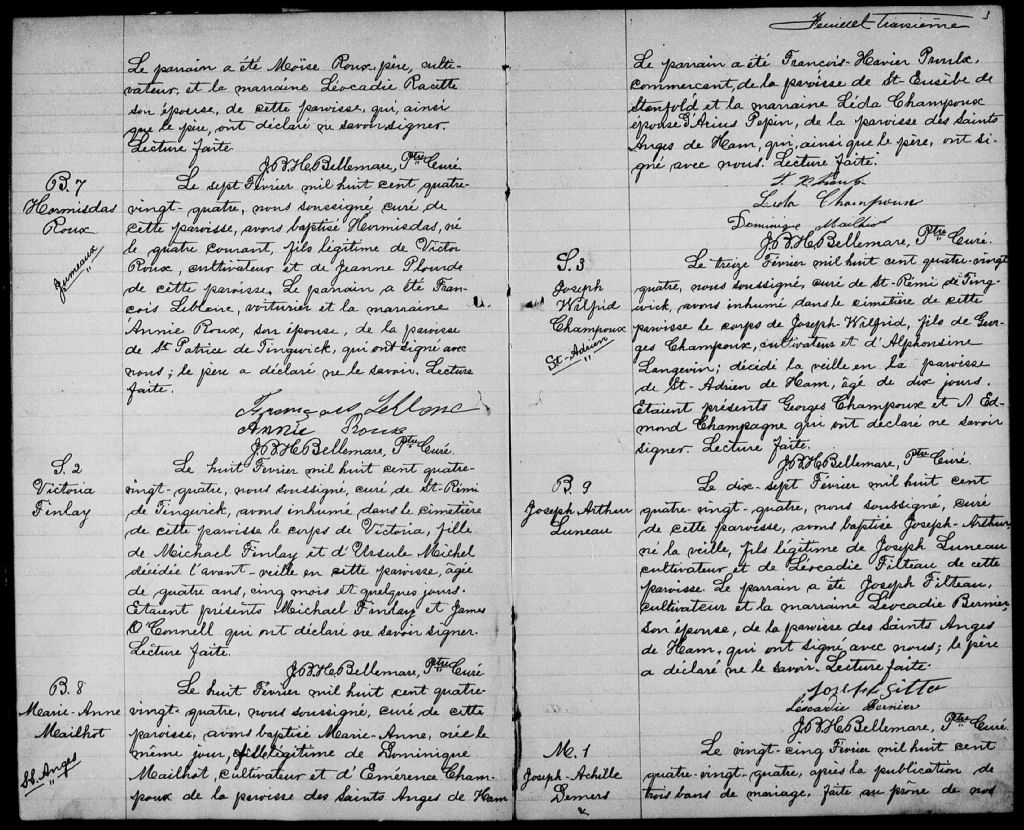 Le parrain a été Moïse Roux, père, culti-
vateur, et la marraine Léocadie Racette
son épouse, de cette paroisse, qui, ainsi
que le père, ont déclaré ne savoir signer.
Lecture faite.
J.B.H.Bellemare, Ptre Curé.
B. 7
Hormisdas
Roux.
Jumeaux
"
Le sept Février mil huit cent quatre-
vingt-quatre, nous soussigné curé de
cette paroisse, avons baptisé Hormisdas, né
le quatre courant, fils légitime de Victor
Roux, cultivateur et de Jeanne Plourde
de cette paroisse. Le parrain a été Fran-
çois Leblanc, voiturier et la marraine
Annie Roux, son épouse, de la paroisse
de St Patrice de Tingwick, qui ont signé avec
nous; le père a déclaré ne le savoir. Lecture
faite.
François Leblanc
Annie Roux
J.B.H.Bellemare, Ptre Curé.
S. 2
Victoria
Finlay
Le huit Février mil huit cent quatre-
vingt-quatre, nous soussigné, curé de St-Rémi
de Tingwick, avons inhumé dans le cimetière
de cette paroisse le corps de Victoria, fille
de Michael Finlay et d'Ursule Michel
décédée l'avant-veille en cette paroisse, âgée
de quatre ans, cinq mois et quelques jours.
Étaient présents Michael Finlay et James
O'Connell qui ont déclaré ne savoir signer.
Lecture faite.
J.B.H.Bellemare, Ptre Curé
B. 8
Marie-Anne
Mailhot
Sts. Anges
"
Le huit Février mil huit cent quatre-
vingt-quatre, nous soussigné, curé de cette
paroisse, avons baptisé Marie-Anne, née le
même jour, fille légitime de Dominique
Mailhot, cultivateur et d'Émérence Cham-
poux de la paroisse des Saints Anges de Ham
3
Feuillet troisième
Le parrain a été François-Xavier Proulx,
commerçant, de la paroisse de St-Eusèbe de
Stanfold et la marraine Léda Champoux
épouse d'Arius Pepin, de la paroisse des Saints
Anges de Ham, qui, ainsi que le père, ont si-
gné avec nous. Lecture faite.
Leda Champoux
Dominique Mailhot
J.B.H.Bellemare, Ptre Curé.
S. 3
Joseph
Wilfrid
Champoux
St-Adrien
"
Le treize Février mil huit cent quatre-vingt
quatre, nous soussigné, curé de St-Rémi de Ting-
wick, avons inhumé dans le cimetière de cette
paroisse le corps de Joseph-Wilfrid, fils de Geor-
ges Champoux, cultivateur et d'Alphonsine
Langevin; décédé la veille en la paroisse
de St-Adrien de Ham, âgé de dix jours.
Étaient présents Georges Champoux et Ed-
mond Champagne qui ont déclaré ne savoir
signer. Lecture faite.
J.B.H.Bellemare, Ptre Curé.
B. 9
Joseph-Arthur
Luneau
Le dix-sept Février mil huit cent
quatre-vingt-quatre, nous soussigné, curé
de cette paroisse, avons baptisé Joseph-Arthur
né la veille, fils légitime de Joseph Luneau
cultivateur et de Léocadie Filteau de cette
paroisse. Le parrain a été Joseph Filteau,
cultivateur et la marraine Léocadie Bernier,
son épouse, de la paroisse des Saints Anges
de Ham, qui ont signé avec nous; le père
a déclaré ne le savoir. Lecture faite.
Joseph
Léocadie Bernier
J.B.H.Bellemare, Ptre Curé.
M. 1
Joseph-Achille
Demers
Le vingt-cinq Février mil huit cent
quatre-vingt-quatre, après la publication de
trois bans de mariage, faite au prone de nos